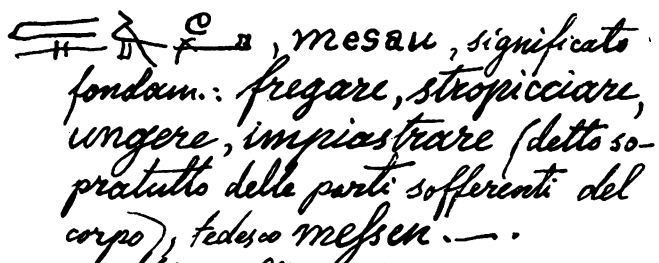 , mesau, significato
fondam.: fregare, stropicciare,
ungere, impiastrare (detto so-
pratutto delle parti sofferenti del
corpo), tedesco meſsen. —.